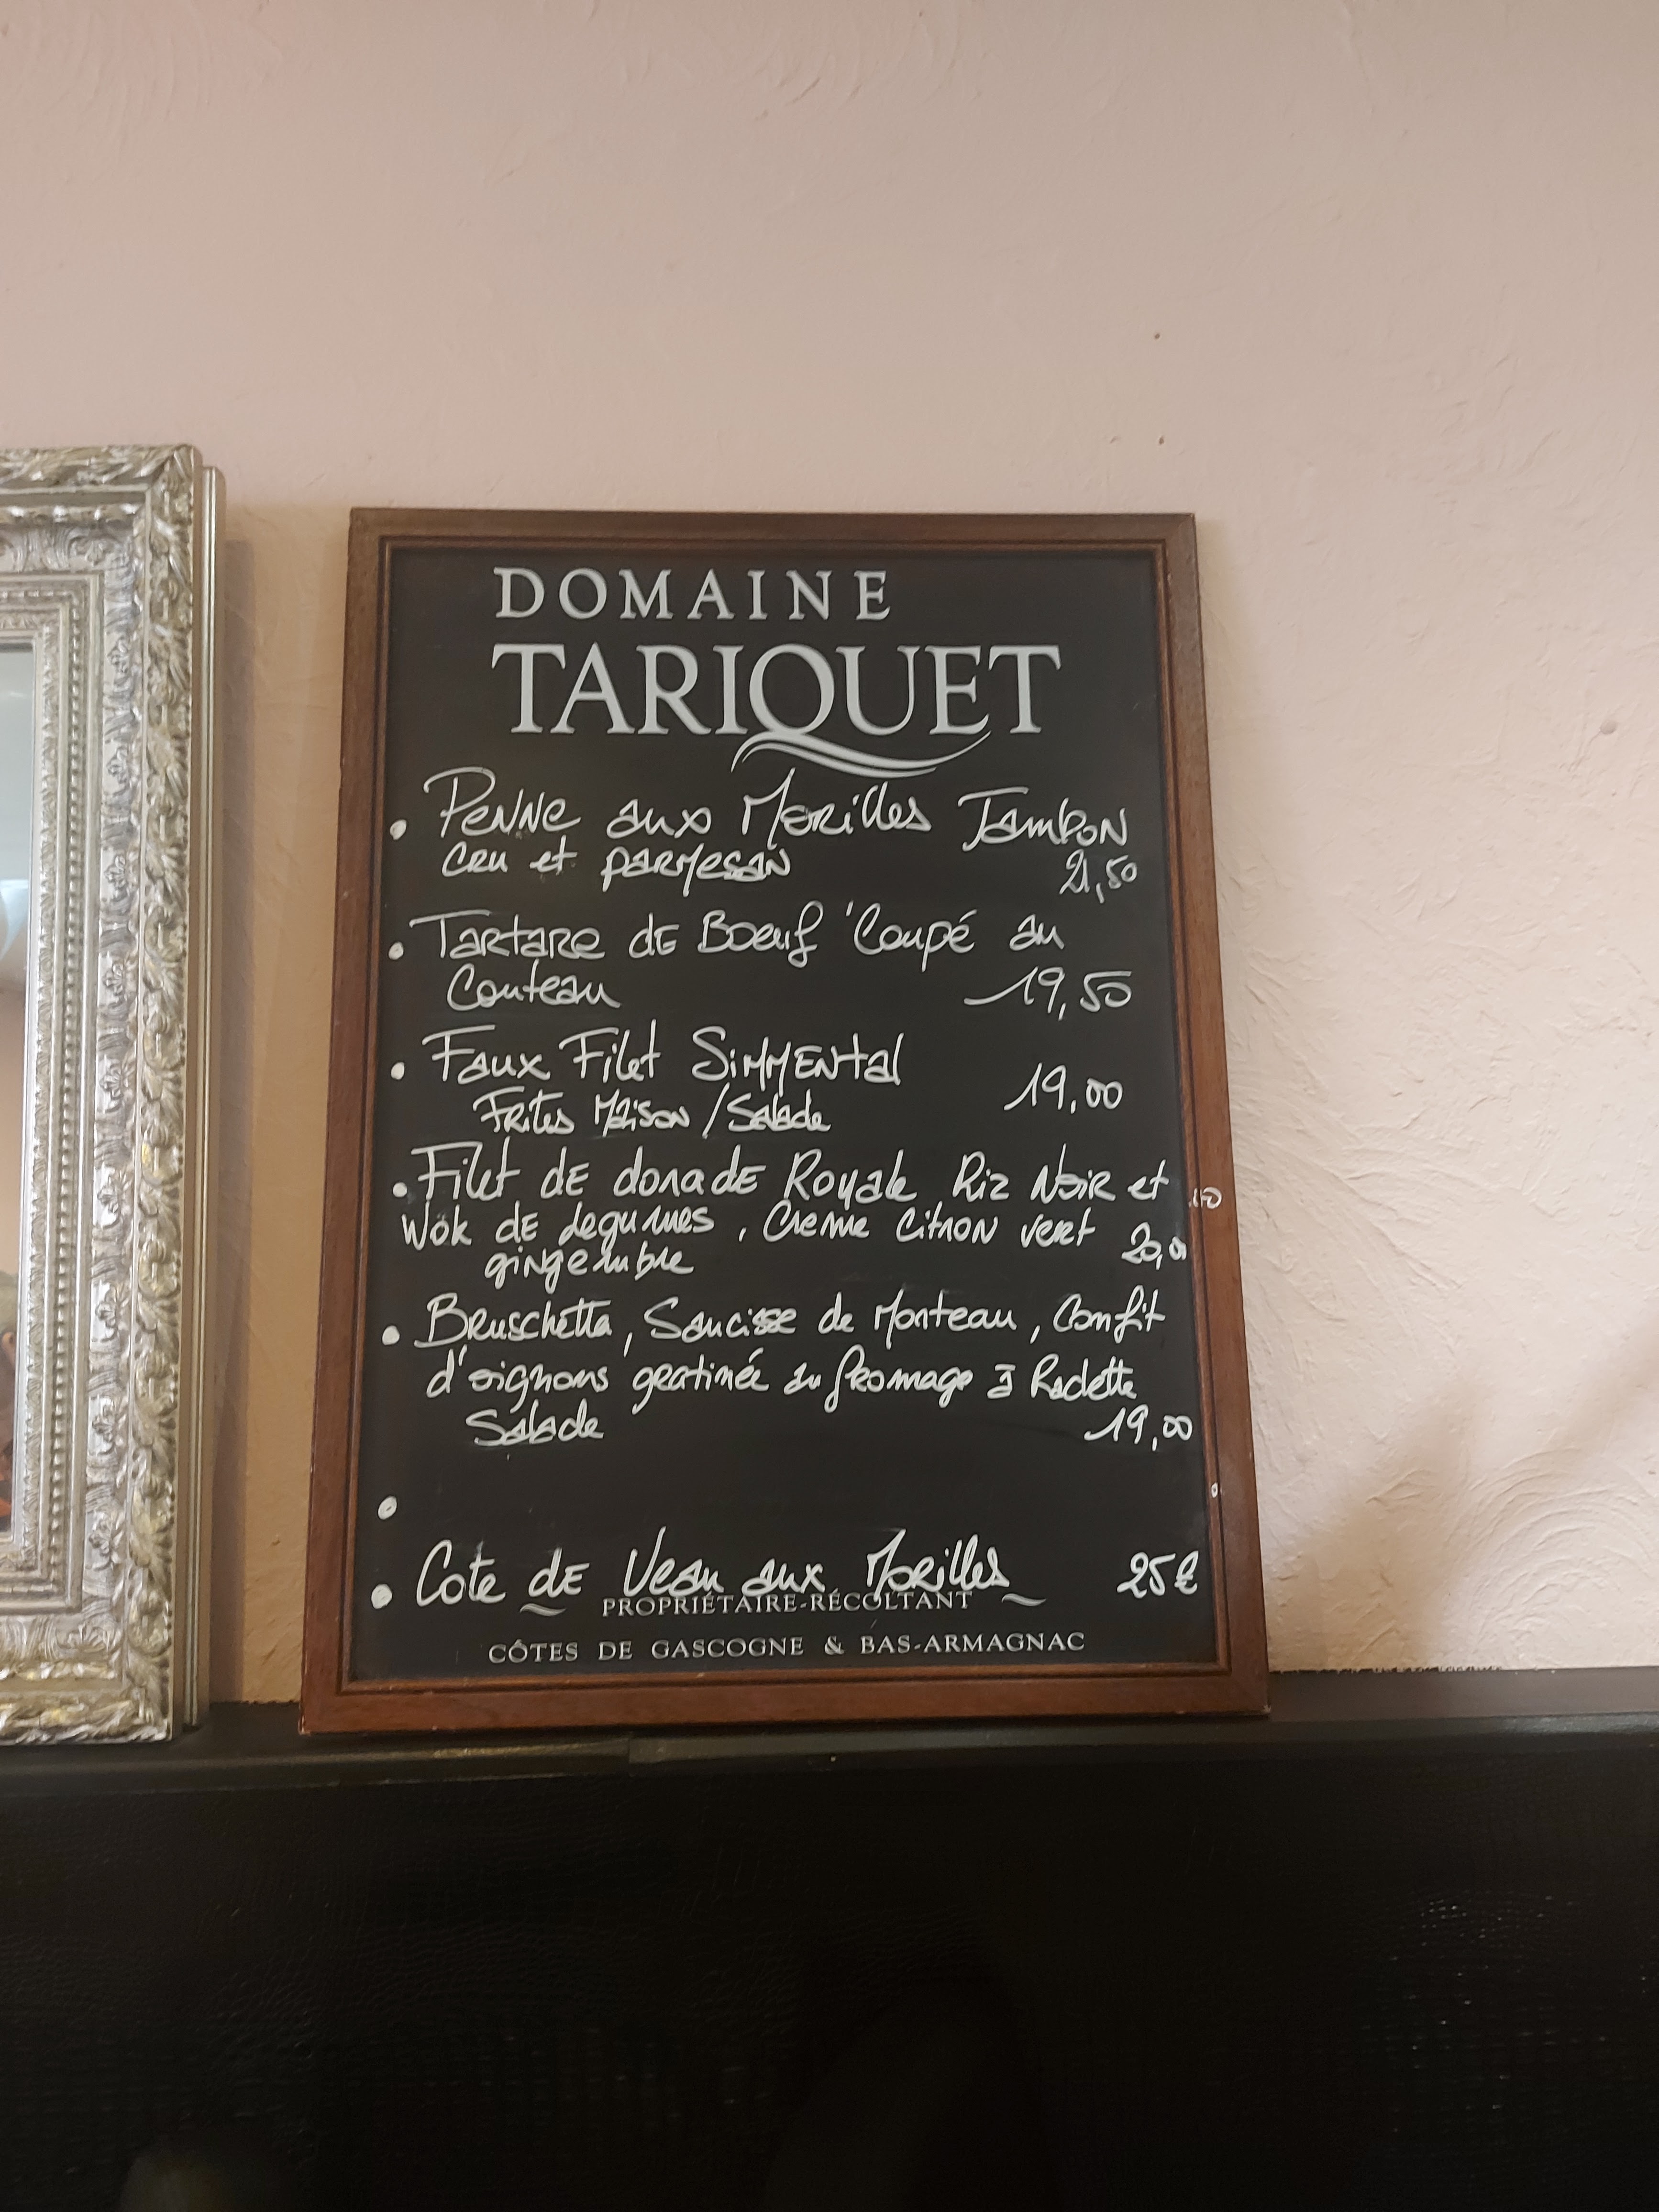 DOMAINE
TARIQUET
• Penne aux Morilles Jambon
cru et parmesan 21,50
• Tartare de Boeuf Coupé au
Couteau 19,50
• Faux Filet Simmental
Frites Maison / Salade 19,00
• Filet de dorade Royale Riz Noir et
Wok de legumes, Creme Citron vert 20,00
gingembre
• Bruschetta, Saucisse de Morteau, Confit
d'oignons gratinée au fromage à Raclette
Salade 19,00
•
• Cote de Veau aux Morilles 25€
PROPRIÉTAIRE-RÉCOLTANT
CÔTES DE GASCOGNE & BAS-ARMAGNAC